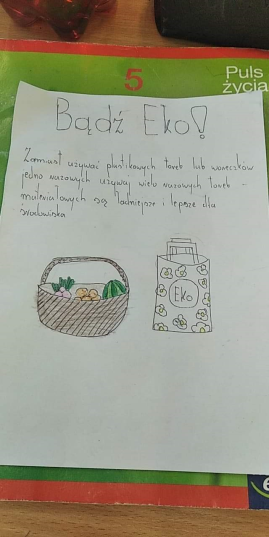 5
Puls
życia
Bądź Eko!
Zamiast używać plastikowych toreb lub woreczków
jedno razowych używaj wielo razowych toreb -
materiałowych są ładniejsze i lepsze dla
środowiska
Eko